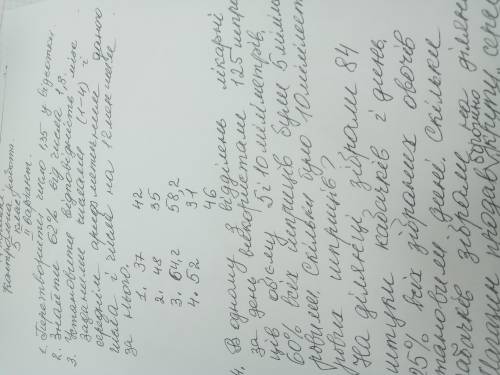 Контрольна робота
5 клас
II варіант.
1. Перетворити число 1,35 у відсотки.
2. Знайти 62% від числа 1,8.
3. Установити відповідність між
заданими числами (1-4) і
середнім арифметичним даного
числа і числа на 12 меншого
за нього
1. 37 42
2. 48 35
3. 64,2 58,2
4. 52 31
46
4. В одному з відділень лікарні
за день використали 125 шприців
ців об'єму 5 і 10 мілілітрів,
60% всіх шприців були 5 мілілі
тровими. Скільки було 10 мілілітро
рових шприців?
На ділянці зібрали 84
штуки кабачків і динь,
25% всіх зібраних овочів
становили дині. Скільки
кабачків зібрали на ділян